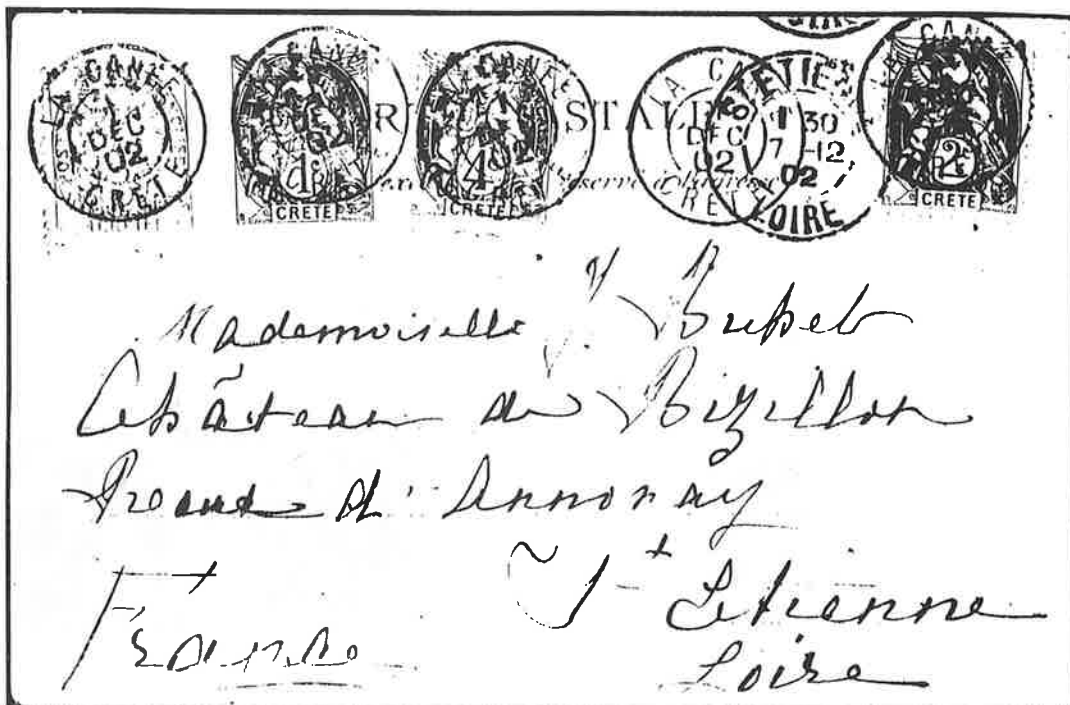 LA CANÉE
1
DEC
02
CRÈTE
1c
CRETE
4
CRETE
LA CANÉE
DEC
02
CRÈTE
ETIENNE
1 30
7 -12
02
LOIRE
2c
CRETE
Mademoiselle
Château de Bizillon
Route d'Annonay
St Etienne
France
Loire